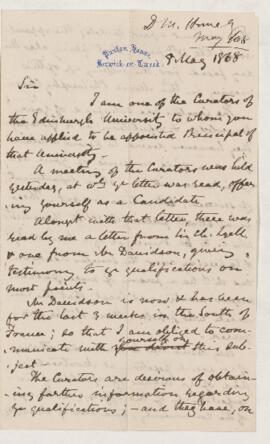 D M. Home
May /68
Paxton House,
Berwick-on-Tweed.
8 May 1868
Sir
I am one of the Curators of
the Edinburgh University to whom you
have applied to be appointed Principal of
that University.
A meeting of the Curators was held
yesterday, at wh yr letter was read, offer-
ing yourself as a Candidate.
Alongst with that letter, there was
read by me a letter from Sir Ch. Lyell
& one from Mr Davidson, giving
testimony to yr qualifications on
most points.
Mr Davidson is now & has been
for the last 3 weeks in the South of
France; so that I am obliged to com-
municate with yourself on this sub-
ject.
The Curators are desirous of obtain-
ing farther information regarding
yr qualifications; – and they have, on